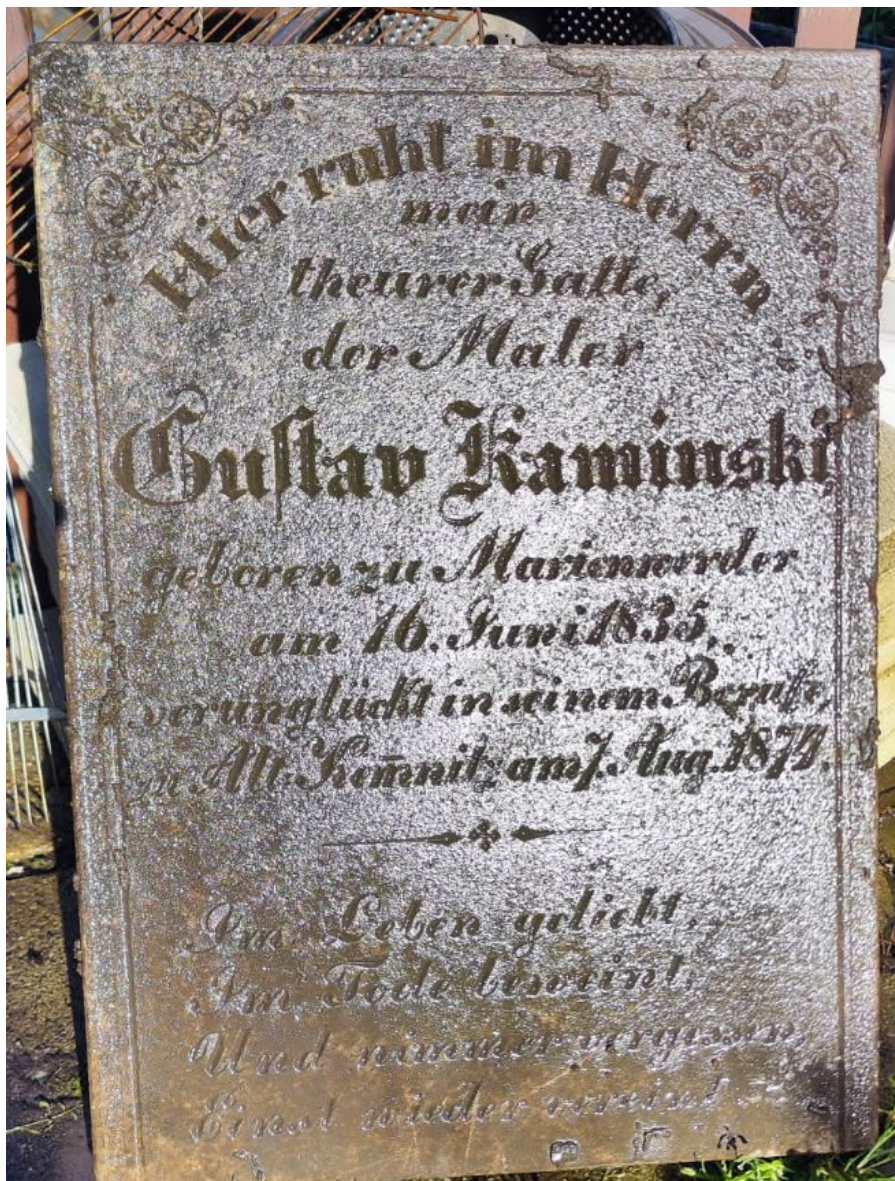 Hier ruht im Herrn
mein
theurer Gatte,
der Maler
Guſtav Kaminski,
geboren zu Marienwerder
am 16. Juni 1835,
verunglückt in seinem Berufe,
zu Alt. Kem̅nitz am 7. Aug. 1874.
Im Leben geliebt,
Im Tode beweint,
Und nimmer vergessen,
Einst wieder vereint